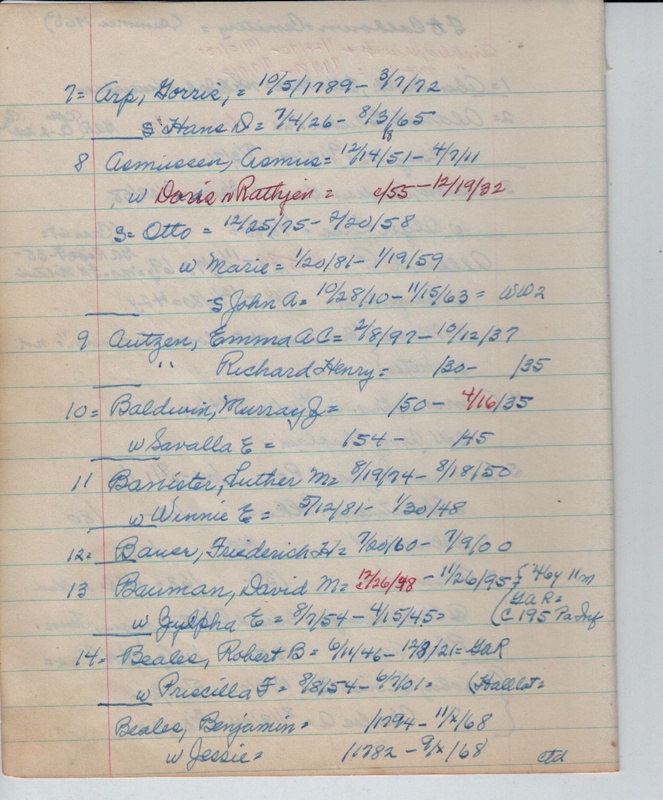 7= Arp, Gorris, = 10/5/1789 - 3/7/72
S' Hans D = 7/4/26 - 8/3/65
8
8 Asmussen, Asmus = 12/14/51 - 4/7/11
w Doris n Rathjen = c/55 - 12/19/32
S = Otto = 12/25/75 - 2/20/58
w Marie = 1/20/81 - 1/19/59
s John A = 10/28/10 - 11/15/63 = WW2
9 Autzen, Emma A C = 2/8/97 - 10/12/37
" Richard Henry = /30 - /35
10 = Baldwin, Murray J = /50 - 4/16/35
w Savalla E = /54 - /45
11 Banister, Luther M = 8/19/74 - 8/18/50
w Winnie E = 5/12/81 - 1/30/48
12 = Bauer, Friederich H = 7/20/60 - 7/9/00
13 Bauman, David M = 12/26/48 - 11/26/95 { '46y 11m
( GAR =
w Zylpha E = 8/7/54 - 4/15/45 = C 195 Pa Inf
14 = Beales, Robert B = 6/11/46 - 12/8/21 = GaR
w Priscilla F = 8/8/54 - 6/7/01 = (Hall lot =
Beales, Benjamin = /1794 - 11/x/68
w Jessie = /1782 - 9/x/68